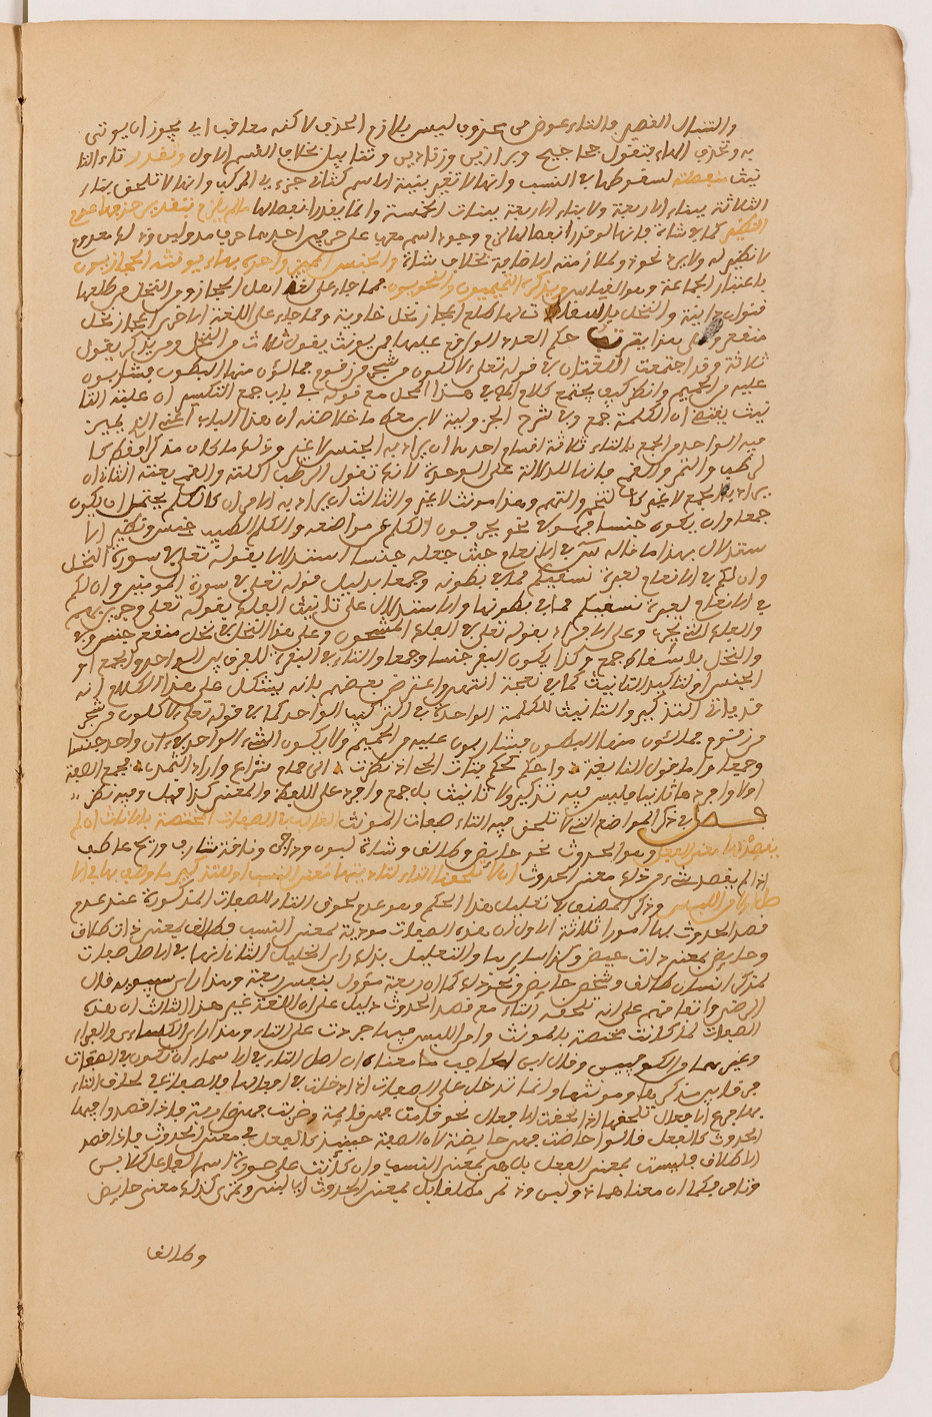 والتسأل الفصر والتاء عوض من محذوف ليس بلازم الحذف لاكنه معاقب اي يجوز ان يوتى
به وتحذف الهاء فتقول جحاجيح وبرازين وزناديق وتنابيل بخلاف القسم الاول وتقدر تاء التا
نيث منفصلة لسقوطها في النسب وانها لا تغير بنية الاسم كثاني جزءي المركب وانها لا تلحق بناء
الثلاثة ببناء الاربعة ولا بناء الاربعة ببنات الخمسة وانما يقدر انفصالها ما لم يلزم بتقدير حذفها عدم
النظير كما في شاة فانها لو قدر انفصالها لزم وجود اسم معرب على حرفين احدهما حرف مد ولين وذلك معدوم
لا نظير له ولا يرد نحو ذو لملازمته الاضافة بخلاف شاة والجنس المميز واحده بهاء يونثه الحجازيون
باعتبار الجماعة وهو القياس ويذكره التميميون والنجديون فمما جاء على لغة اهل الحجاز ومن النخل من طلعها
قنوان دانية والنخل باسقات لها طلع اعجاز نخل خاوية ومما جاء على اللغة الاخرى اعجاز نخل
منقعر وعلى هذا يقرب حكم العدد الواقع عليها فمن يونث يقول ثلاث من النخل ومن يذكر يقول
ثلاثة وقد اجتمعت اللغتان في قوله تعلى لاكلون من شجر من زقوم فمالئون منها البطون فشاربون
عليه من الحميم وانظر كيف يجتمع كلامه في هذا المحل مع قوله في باب جمع التكسير ان علة التا
نيث يقتضي ان الكلمة جمع وفي شرح الجزولية لابن معط ما خلاصته ان هذا الباب اعني الذي يميز
فيه الواحد من الجمع بالتاء ثلاثة اقسام احدها ان يراد به الجنس لا غير وذلك ما كان مذكرا فقط كما
لرطب والتمر والعنب فانها للدلالة على الوحدة لانه تقول الرطب اكلته والعنب بعته الثاني ان
يراد به الجمع لا غير كالتخم والتهم وهذا مونث لا غير والثالث ان يراد به الامران كالكلم يحتمل ان يكون
جمعا وان يكون جنسا فهو في نحو يحرفون الكلم عن مواضعه والكلم الطيب جنس ونظير الا
ستدلال بهذا ما قاله س في الانعام حيث جعله جنسا استدلالا بقوله تعلى في سورة النحل
وان لكم في الانعام لعبرة نسقيكم مما في بطونه وجمعا بدليل قوله تعلى في سورة المومنين وان لكم
في الانعام لعبرة نسقيكم مما في بطونها والاستدلال على تانيث الفلك بقوله تعلى وجرين بهم
والفلك التي تجري وعلى الافراد بقوله تعلى في الفلك المشحون وعلى هذا النخل في نخل منقعر جنس وفي
والنخل باسقات جمع وكذا يكون البقر جنسا وجمعا والتاء في البقرة للفرق بين الواحد والجمع او
الجنس او لتاكيد التانيث كما في نعجة انتهى واعترض بعضهم بانه يشكل على هذا الكلام انه
قد ياتي التذكير والتانيث للكلمة الواحدة في التركيب الواحد كما في قوله تعلى لاكلون من شجر
من زقوم فمالئون منها البطون فشاربون عليه من الحميم ولا يكون الشيء الواحد في ان واحد جنسا
وجمعا واما قول النابغة واحكم كحكم فتاة الحي اذ نظرت الى حمام شراع وارد الثمد فجمع الصفة
اولا وافردها ثانيا فليس فيه تذكير ولا تانيث بل جمع وافرد على اللفظ والمعنى كذا قيل وفيه نظر
فصل في ذكر المواضع التي لا تلحق فيه التاء صفات المونث الغالب في الصفات المختصة بالاناث ان لم
يقصد بها معنى الفعل وهو الحدوث نحو حائض وطالق وشاة لبون وناقة شارف وريح عاصف
اذا لم يقصد شيء من ذلك معنى الحدوث ان لا تلحقها التاء لتاديتها معنى النسب او لتذكير ما وصف بها في الا
صل او لامن اللبس وذكر المصنف في تعليل هذا الحكم وهو عدم لحوق التاء للصفات المذكورة عند عدم
قصد الحدوث بها امورا ثلاثة الاول ان هذه الصفات مودية بمعنى النسب فطالق بمعنى ذات طلاق
وحائض بمعنى ذات حيض وكذا سايرها والتعليل بذلك راي الخليل الثاني انها في الاصل صفات
لمذكر انسان طالق وشخص حائض ونحو ذلك كما ان ربعة مؤول بنفس ربعة وهذا راي سيبويه قال
الرضي واتفاقهم على انه تلحقه التاء مع قصد الحدوث دليل على ان العلة غير هذا الثالث ان هذه
الصفات لما كانت مختصة بالمونث وامن اللبس فيها جردت على التاء وهذا راي الكسائي والفراء
وغيرهما من الكوفيين وقال ابن الحاجب ما معناه ان اصل التاء في الاسماء ان تكون في الصفات
فرقا بين مذكرها ومونثها وانما تدخل على الصفات اذا دخلت في افعالها فالصفات في لحاق التاء
بها فرع الافعال تلحقها اذا لحقت الافعال نحو قامت فهي قايمة وضربت فهي ضاربة فاذا قصدوا فيها
الحدوث كالفعل قالوا حاضت فهي حايضة لان الصفة حينئذ كالفعل في معنى الحدوث فاذا قصد
الاطلاق فليست بمعنى الفعل بل هي بمعنى النسب وان كانت على صورة اسم الفاعل كلابس
وتامر فكما ان معناهما ذو لبن وذو تمر مطلقا بل بمعنى الحدوث اي لبني وتمري كذلك معنى حايض
وطالق